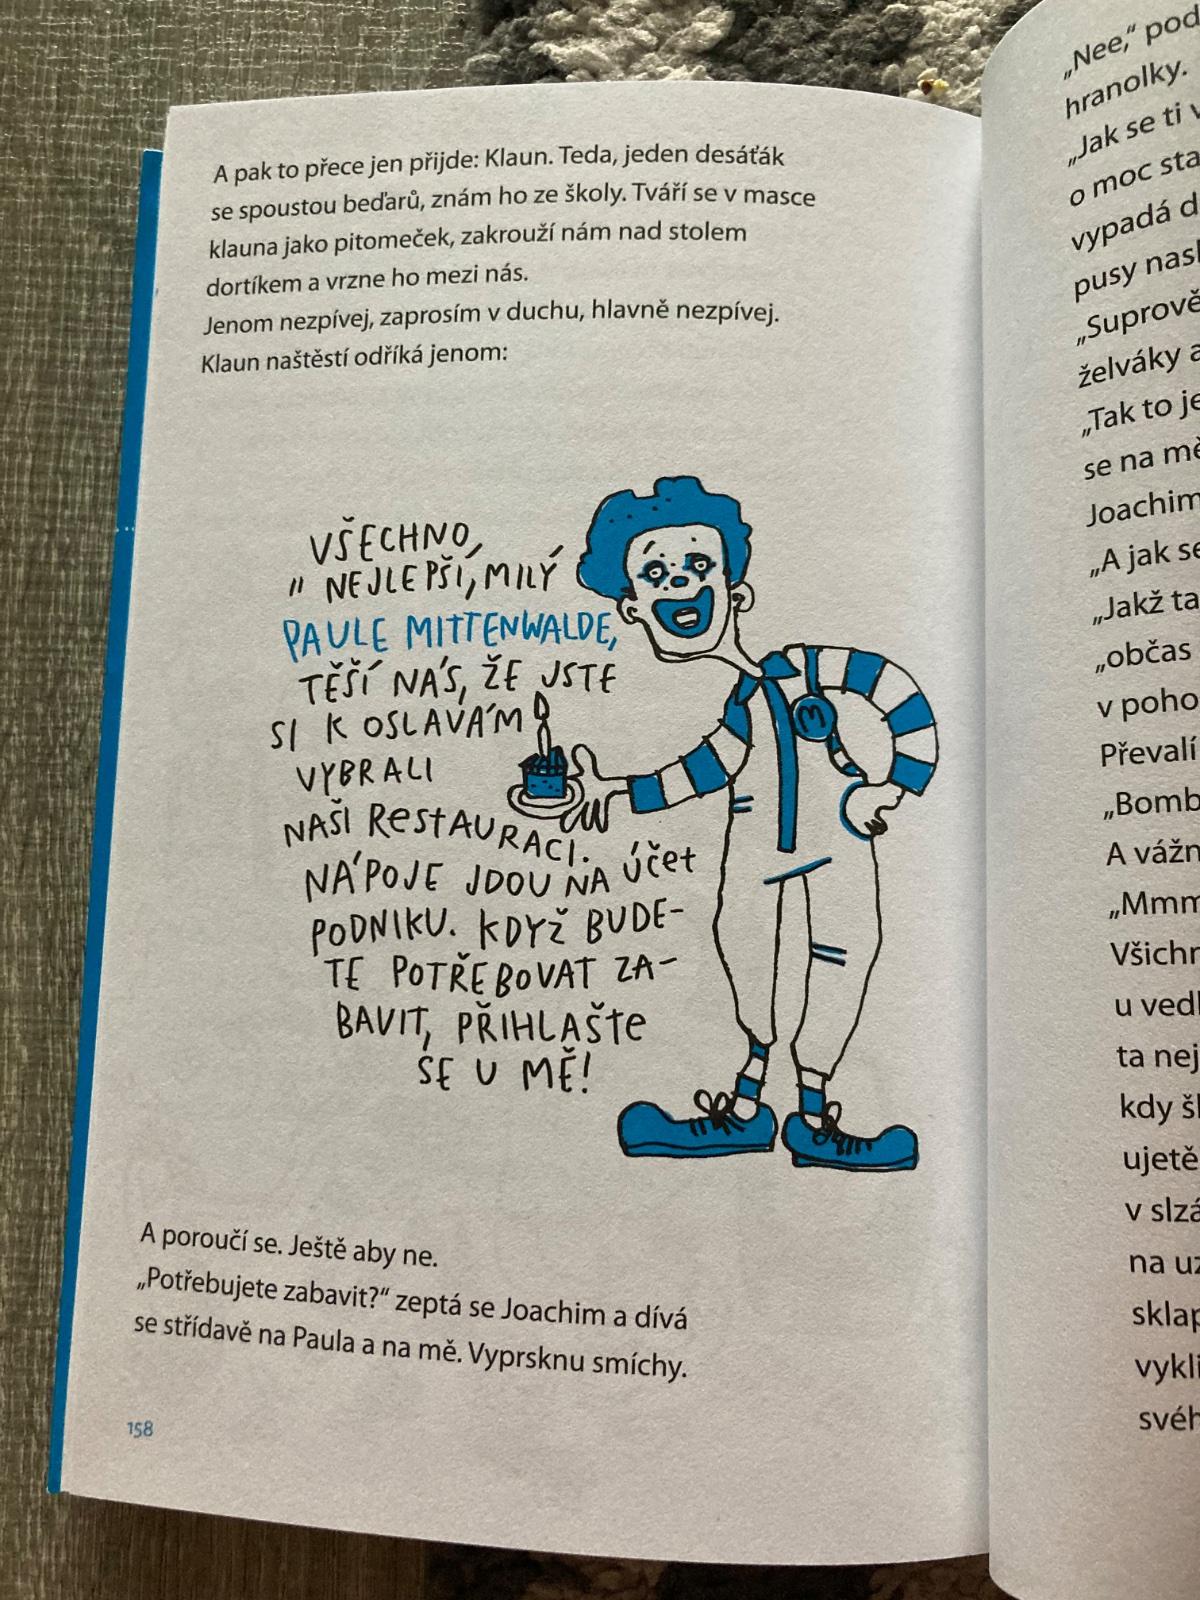 A pak to přece jen přijde: Klaun. Teda, jeden desáťák
se spoustou beďarů, znám ho ze školy. Tváří se v masce
klauna jako pitomeček, zakrouží nám nad stolem
dortíkem a vrzne ho mezi nás.
Jenom nezpívej, zaprosím v duchu, hlavně nezpívej.
Klaun naštěstí odříká jenom:
VŠECHNO
„NEJLEPŠÍ, MILÝ
PAULE MITTENWALDE,
TĚŠÍ NÁS, ŽE JSTE
SI K OSLAVÁM
VYBRALI
NAŠI RESTAURACI.
NÁPOJE JDOU NA ÚČET
PODNIKU. KDYŽ BUDE-
TE POTŘEBOVAT ZA-
BAVIT, PŘIHLAŠTE
SE U MĚ!
M
A poroučí se. Ještě aby ne.
„Potřebujete zabavit?“ zeptá se Joachim a dívá
se střídavě na Paula a na mě. Vyprsknu smíchy.
158
„Nee,“ pod
hranolky.
„Jak se ti v
o moc sta
vypadá d
pusy nasl
„Suprově
želváky a
„Tak to je
se na mě
Joachim
„A jak se
„Jakž ta
„občas
v poho
Převalí
„Bomb
A vážn
„Mmm
Všichn
u vedl
ta nej
kdy šl
ujetě
v slzá
na uz
sklap
vykli
svéh